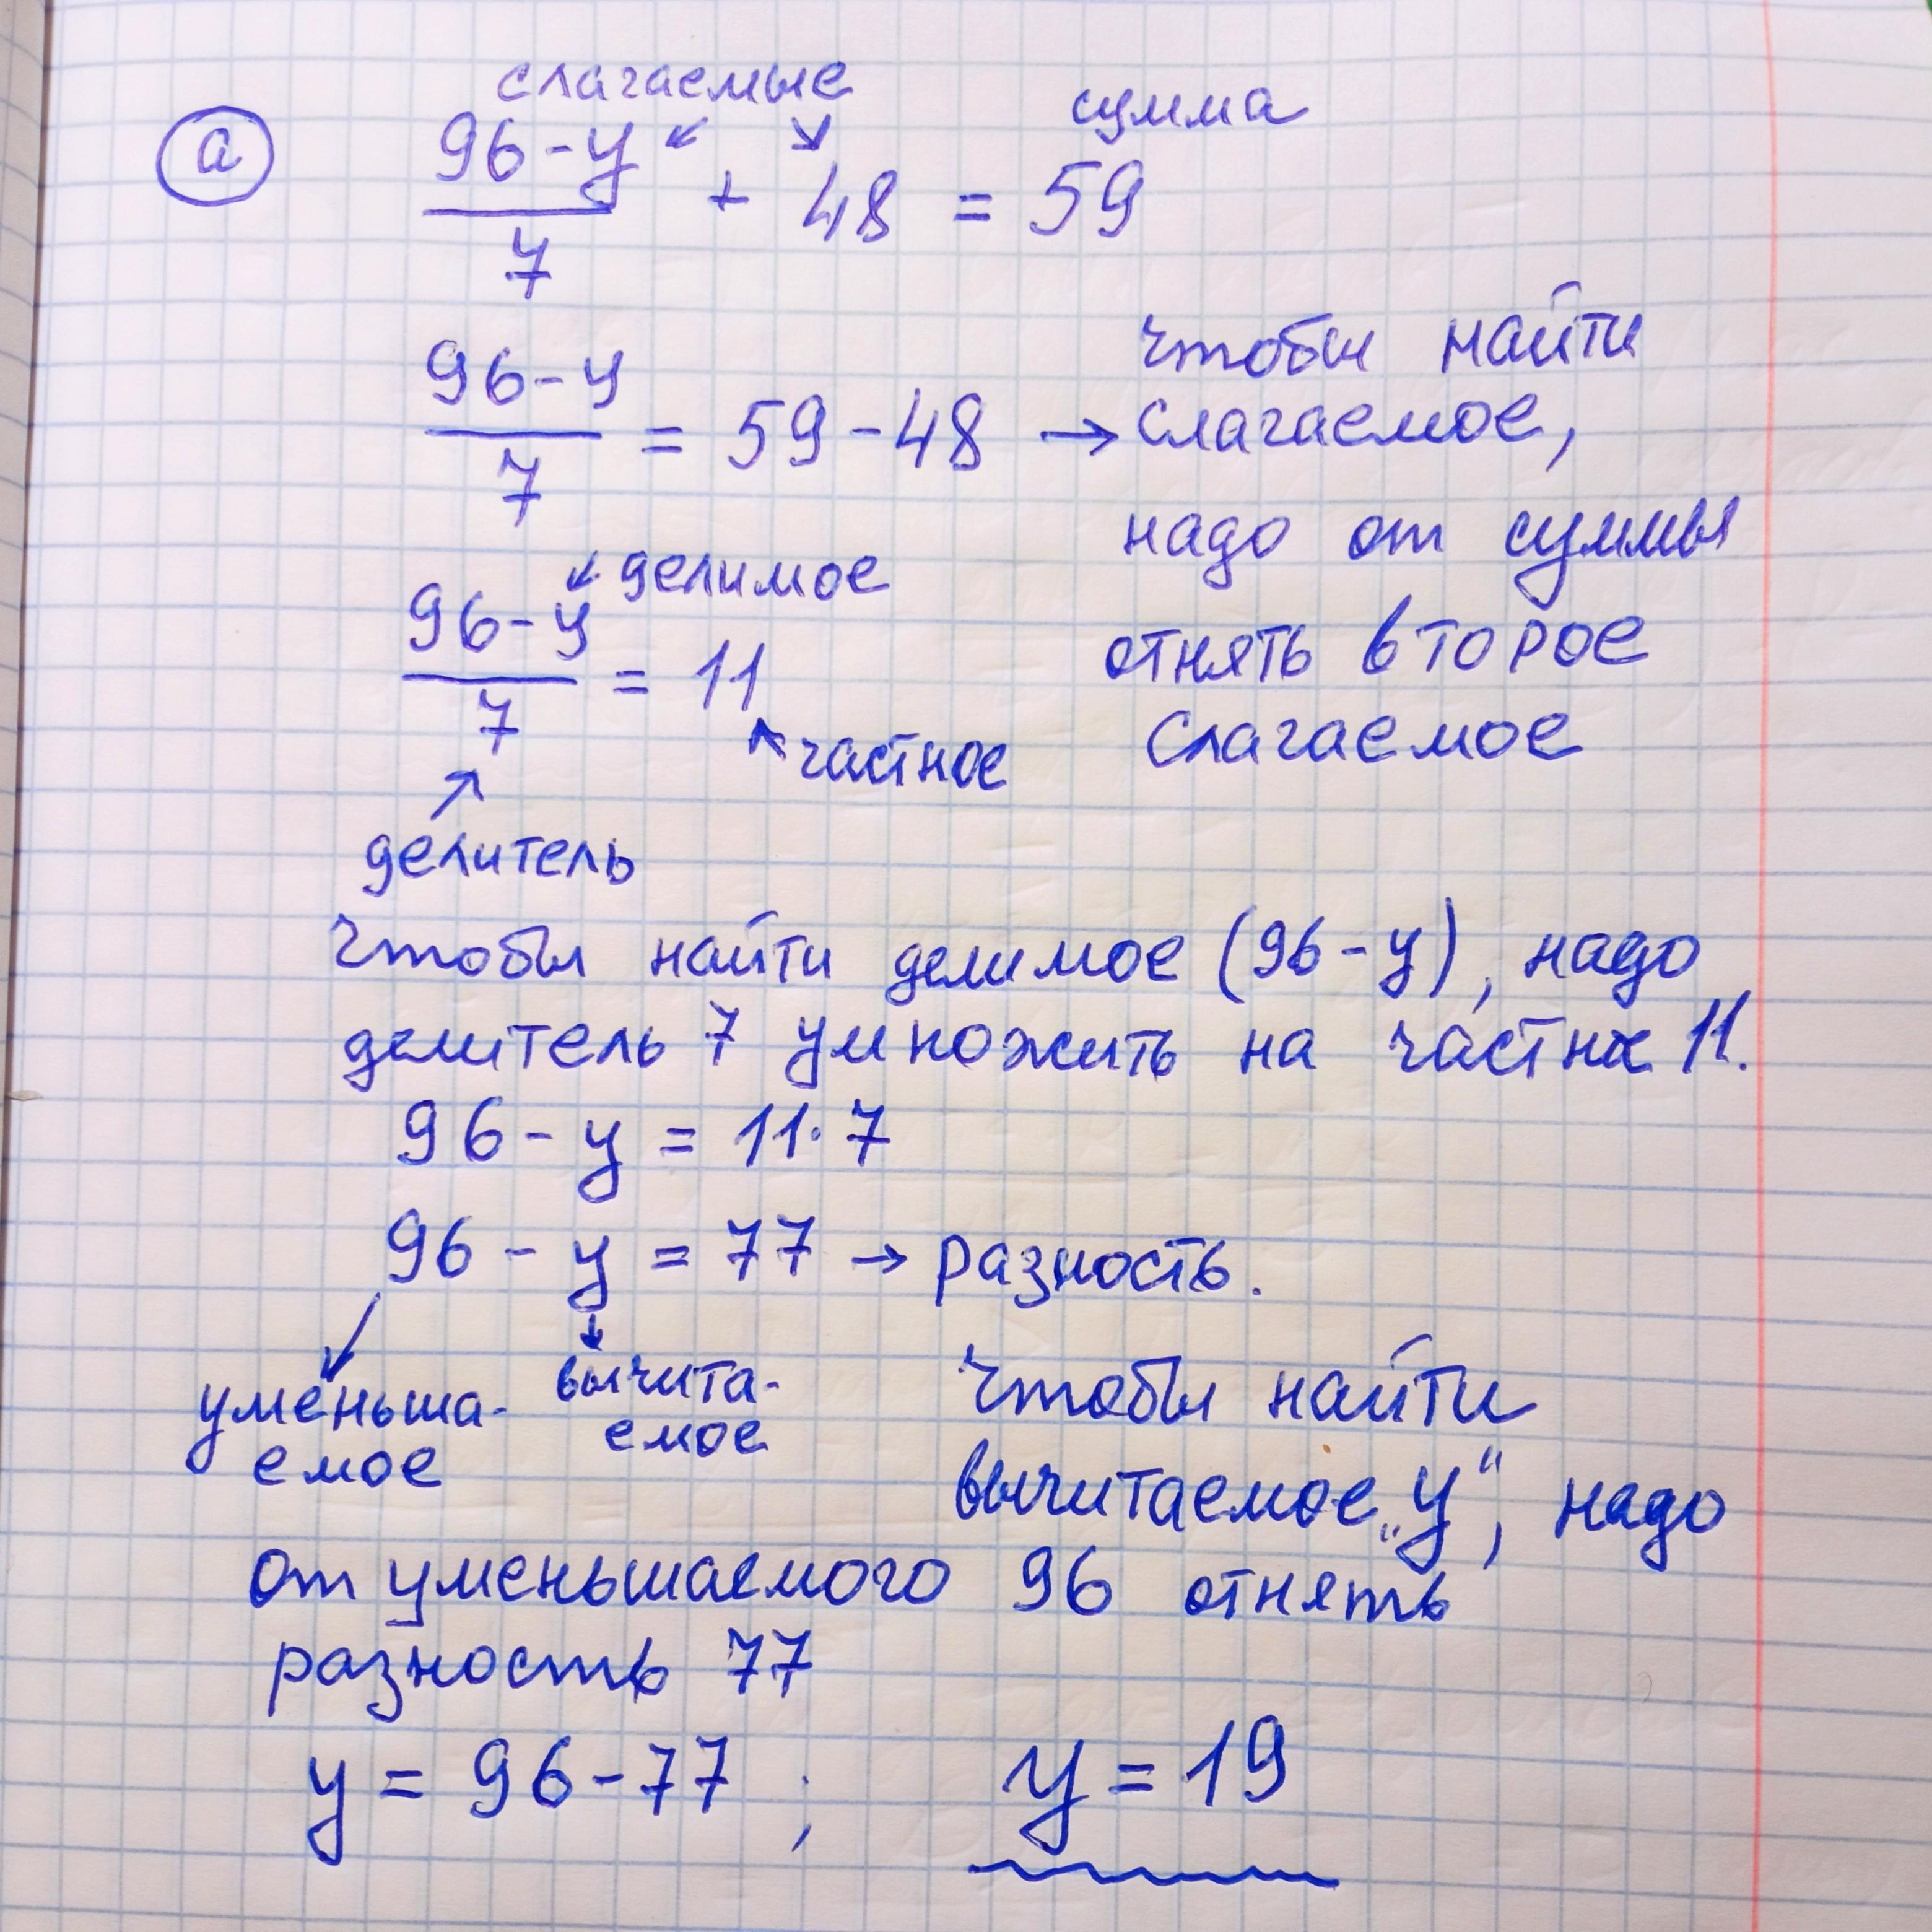 слагаемые сумма
а (96-y)/7 + 48 = 59
(96-y)/7 = 59-48 → чтобы найти
слагаемое,
надо от суммы
делимое
(96-y)/7 = 11 отнять второе
частное слагаемое
делитель
Чтобы найти делимое (96-y), надо
делитель 7 умножить на частное 11.
96 - y = 11·7
96 - y = 77 → разность.
уменьша- вычита- Чтобы найти
емое емое вычитаемое „y“, надо
от уменьшаемого 96 отнять
разность 77
y = 96-77 ; y = 19